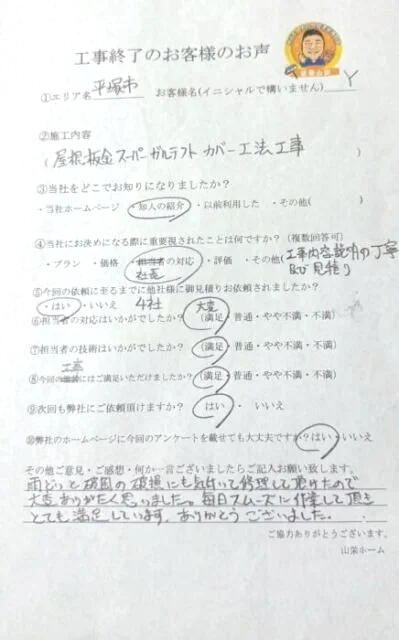 工事終了のお客様のお声
①エリア名 平塚市 お客様名(イニシャルで構いません) Y
②施工内容
(屋根板金スーパーガルテクト カバー工法工事)
③当社をどこでお知りになりましたか?
・当社ホームページ ・知人の紹介 ・以前利用した ・その他( )
④当社にお決めになる際に重要視されたことは何ですか?(複数回答可)
・プラン ・価格 ・担当者の対応 ・評価 ・その他(工事内容説明の丁寧
社長 及び見積り
⑤今回の依頼に至るまでに他社様に御見積りお依頼されましたか?
・はい ・いいえ 4社 大変
⑥担当者の対応はいかがでしたか? (満足・普通・やや不満・不満)
⑦担当者の技術はいかがでしたか? (満足・普通・やや不満・不満)
工事
⑧今回のにはご満足いただけましたか?(満足・普通・やや不満・不満)
⑨次回も弊社にご依頼頂けますか? はい ・ いいえ
⑩弊社のホームページに今回のアンケートを載せても大丈夫ですか?はい・いいえ
その他ご意見・ご感想・何か一言ございましたらご記入お願い致します。
雨どいと破風の破損にも気付いて修理して頂けたので
大変ありがたく思いました。毎日スムーズに作業して頂き
とても満足しています。ありがとうございました。
ご協力ありがとうございます。
山栄ホーム